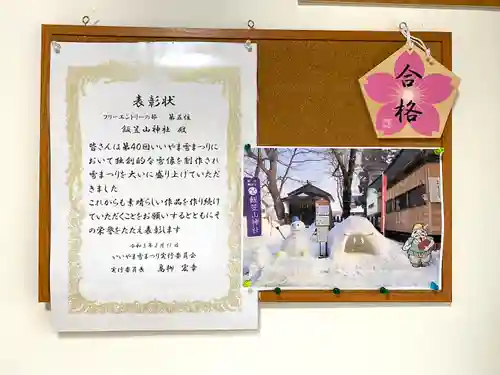 表彰状
フリーエントリーの部　第五位
飯笠山神社 殿
皆さんは第40回いいやま雪まつりに
おいて独創的な雪像を制作され
雪まつりを大いに盛り上げていただ
きました
これからも素晴らしい作品を作り続け
ていただくことをお願いするとともにそ
の栄誉をたたえ表彰します
いいやま雪まつり実行委員会
実行委員長
合格
飯笠山神社